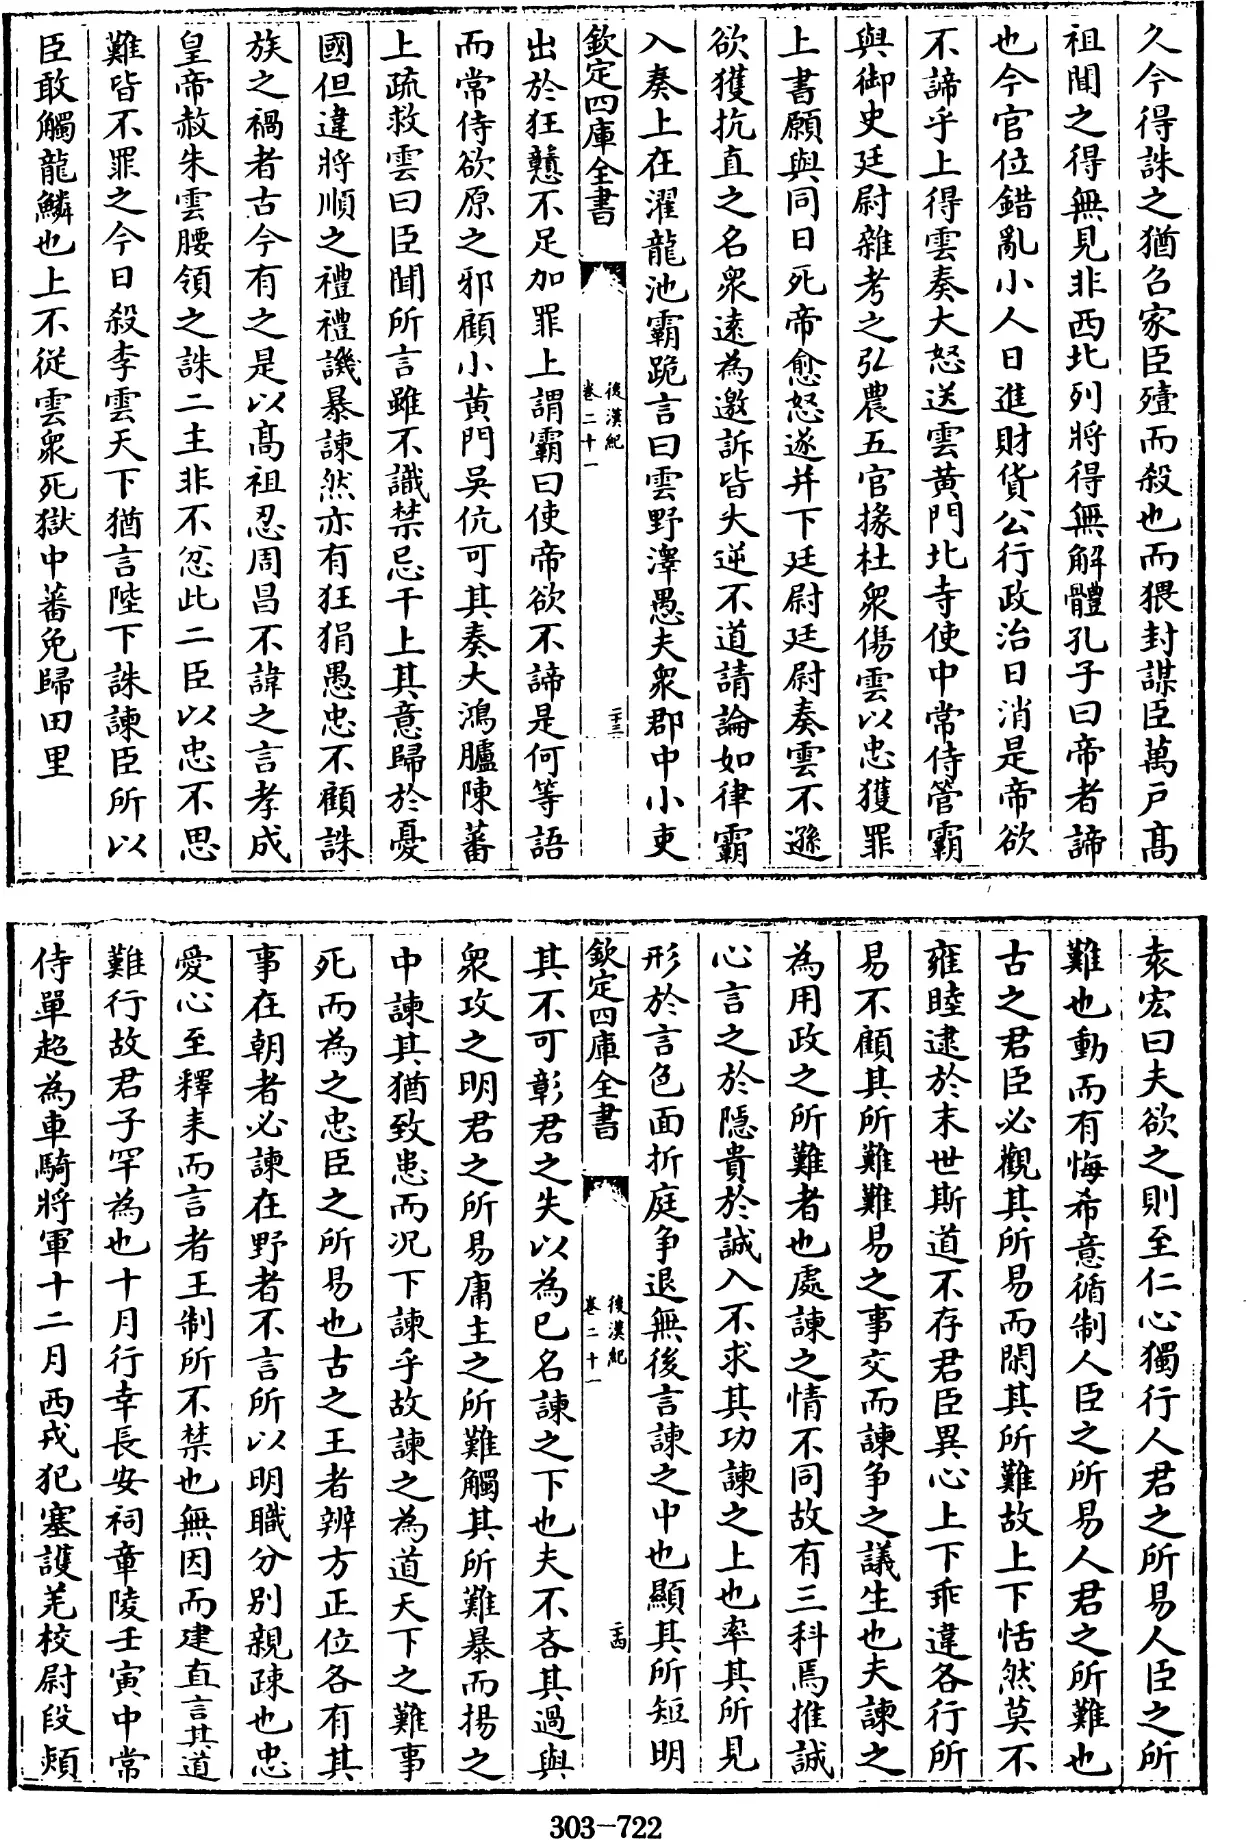 久今得誅之猶召家臣殪而殺也而猥封謀臣萬戸髙
祖聞之得無見非西北列將得無解體孔子曰帝者諦
也今官位錯亂小人日進財貨公行政治日消是帝欲
不諦乎上得雲奏大怒送雲黄門北寺使中常侍管霸
與御史廷尉雜考之弘農五官掾杜衆傷雲以忠獲罪
上書願與同日死帝愈怒遂并下廷尉廷尉奏雲不遜
欲獲抗直之名衆遠為邀訴皆大逆不道請論如律霸
入奏上在濯龍池霸跪言曰雲野澤愚夫衆郡中小吏
欽定四庫全書
後漢紀
卷二十一
二十三
出於狂戅不足加罪上謂霸曰使帝欲不諦是何等語
而常侍欲原之邪顧小黄門吳伉可其奏大鴻臚陳蕃
上疏救雲曰臣聞所言雖不識禁忌干上其意歸於憂
國但違將順之禮禮譏暴諫然亦有狂狷愚忠不顧誅
族之禍者古今有之是以髙祖忍周昌不諱之言孝成
皇帝赦朱雲腰領之誅二主非不忿此二臣以忠不思
難皆不罪之今日殺李雲天下猶言陛下誅諫臣所以
臣敢觸龍鱗也上不從雲衆死獄中蕃免歸田里
袁宏曰夫欲之則至仁心獨行人君之所易人臣之所
難也動而有悔希意循制人臣之所易人君之所難也
古之君臣必觀其所易而閑其所難故上下恬然莫不
雍睦逮於末世斯道不存君臣異心上下乖違各行所
易不顧其所難難易之事交而諫争之議生也夫諫之
為用政之所難者也處諫之情不同故有三科焉推誠
心言之於隱貴於誠入不求其功諫之上也率其所見
形於言色面折庭争退無後言諫之中也顯其所短明
欽定四庫全書
後漢紀
卷二十一
二十四
其不可彰君之失以為已名諫之下也夫不吝其過與
衆攻之明君之所易庸主之所難觸其所難暴而揚之
中諫其猶致患而况下諫乎故諫之為道天下之難事
死而為之忠臣之所易也古之王者辨方正位各有其
事在朝者必諫在野者不言所以明職分别親疎也忠
愛心至釋耒而言者王制所不禁也無因而建直言其道
難行故君子罕為也十月行幸長安祠章陵壬寅中常
侍單超為車騎將軍十二月西戎犯塞護羌校尉段熲
303-722